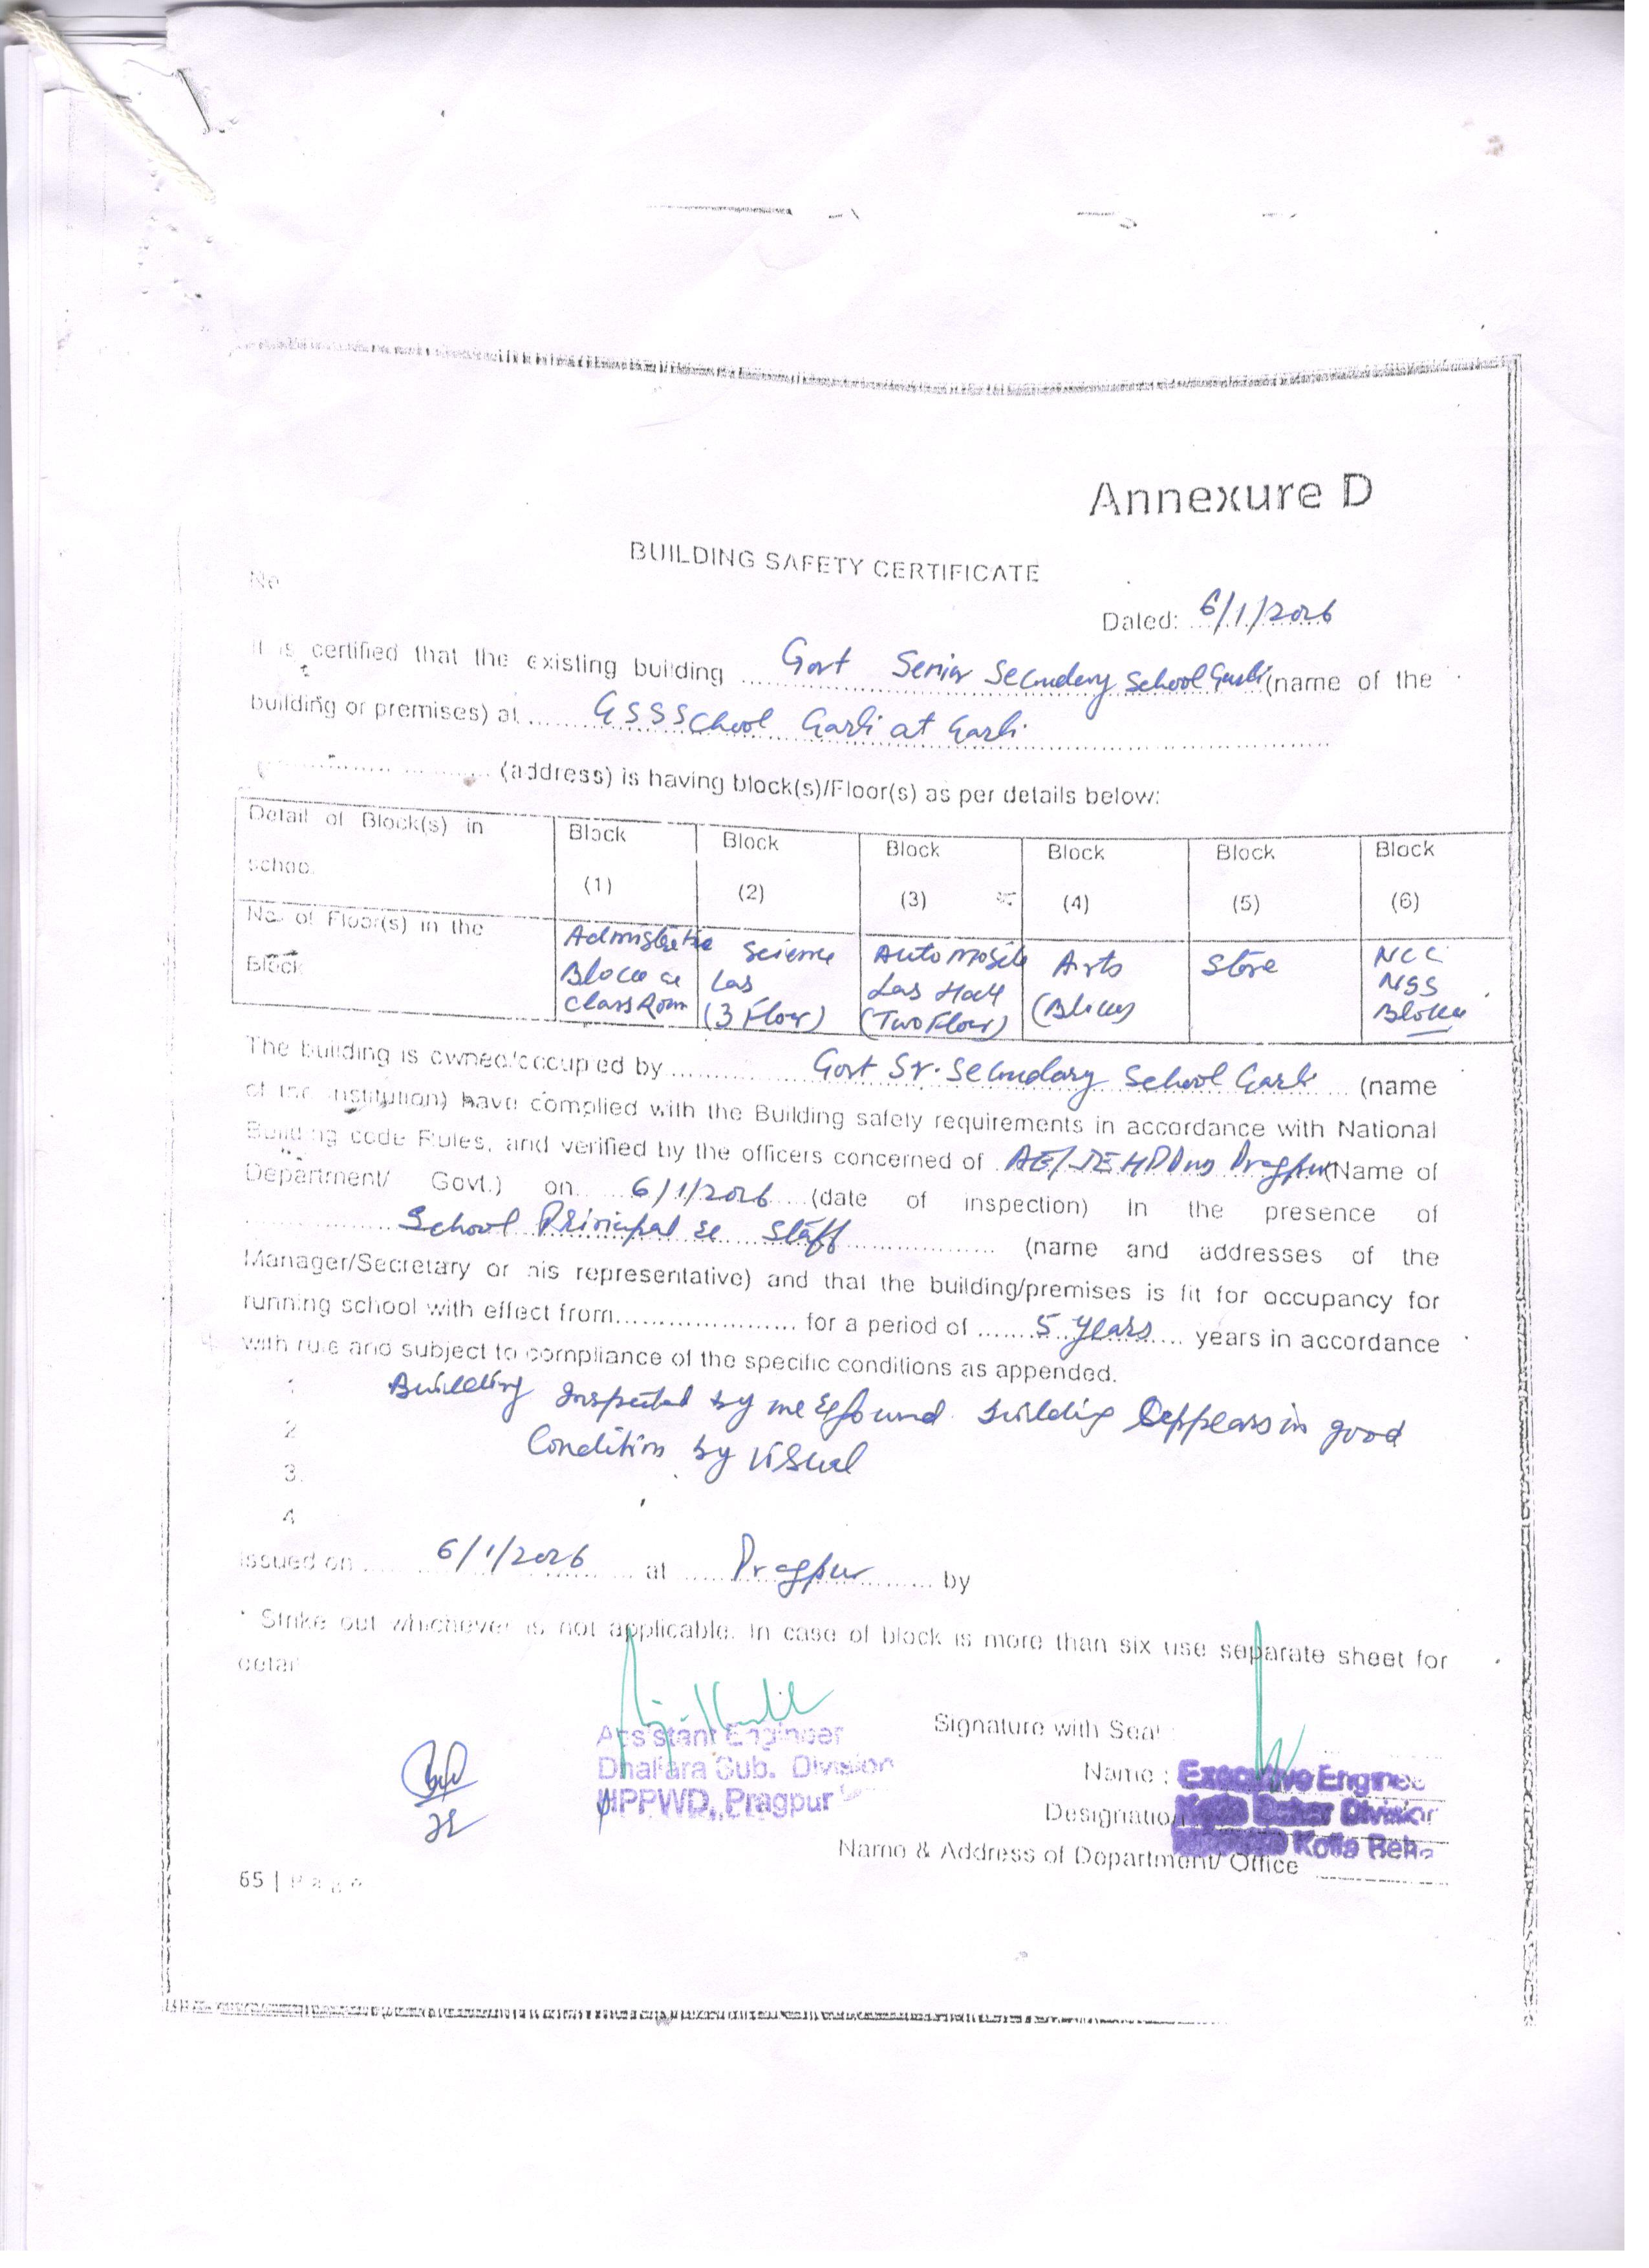 Annexure D
BUILDING SAFETY CERTIFICATE
No
Dated: 6/1/2026
It is certified that the existing building Govt Senior Secondary School Garli (name of the
building or premises) at GSSSchool Garli at Garli
(address) is having block(s)/Floor(s) as per details below:
Detail of Block(s) in school Block (1) Block (2) Block (3) Block (4) Block (5) Block (6)
No. of Floor(s) in the Block Block Class Room Science (3 Floor) Automobile Hall (Two Floor) Arts Store NCC NSS Block
The building is owned/occupied by Govt Sr. Secondary School Garli (name
of the institution) have complied with the Building safety requirements in accordance with National
Building code Rules, and verified by the officers concerned of AE/JE Pragpur (Name of
Department/ Govt.) on 6/1/2026 (date of inspection) in the presence of
School Principal & Staff (name and addresses of the
Manager/Secretary or his representative) and that the building/premises is fit for occupancy for
running school with effect from for a period of 5 years years in accordance
with rule and subject to compliance of the specific conditions as appended.
1 Building Inspected by me & found building appears in good
2 Condition by visual
3.
4
issued on 6/1/2026 at Pragpur by
* Strike out whichever is not applicable. In case of block is more than six use separate sheet for
detail
Assistant Engineer
Dhaliara Sub. Division
HPPWD, Pragpur
JE
Signature with Seal
Name : Executive Engineer
Designation Division
Kotla
Name & Address of Department/ Office
65 | Page